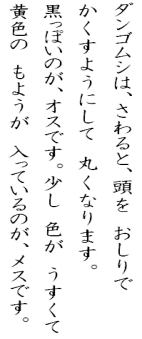 ダンゴムシは、さわると、頭を おしりで
かくすようにして 丸くなります。
黒っぽいのが、オスです。少し 色が うすくて
黄色の もようが 入っているのが、メスです。